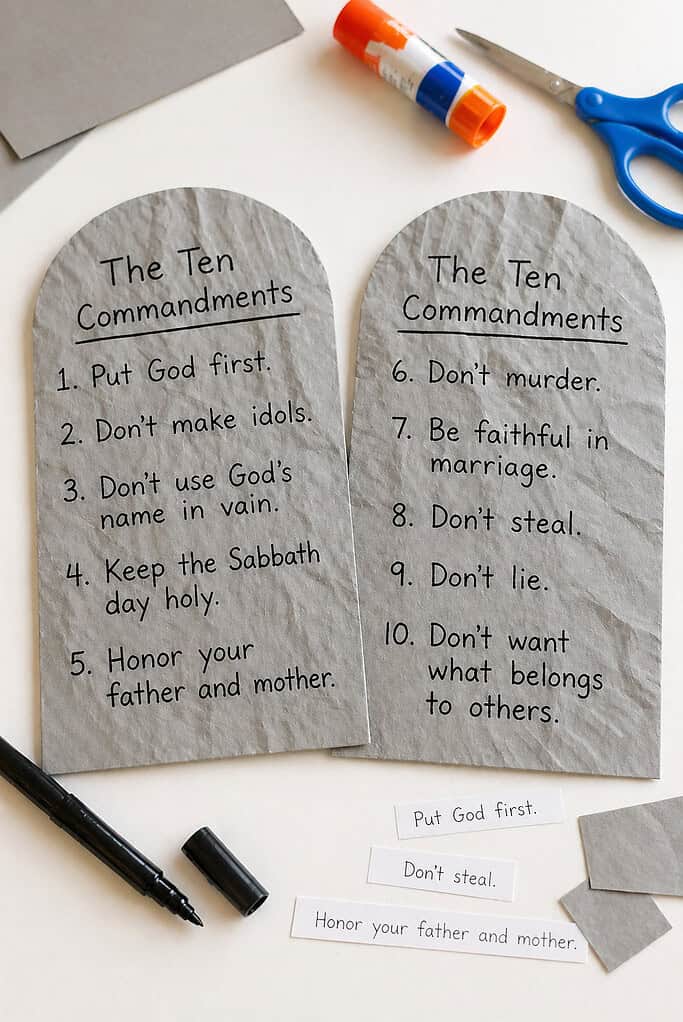 The Ten
Commandments
1. Put God first.
2. Don't make idols.
3. Don't use God's
name in vain.
4. Keep the Sabbath
day holy.
5. Honor your
father and mother.
The Ten
Commandments
6. Don't murder.
7. Be faithful in
marriage.
8. Don't steal.
9. Don't lie.
10. Don't want
what belongs
to others.
Put God first.
Don't steal.
Honor your father and mother.